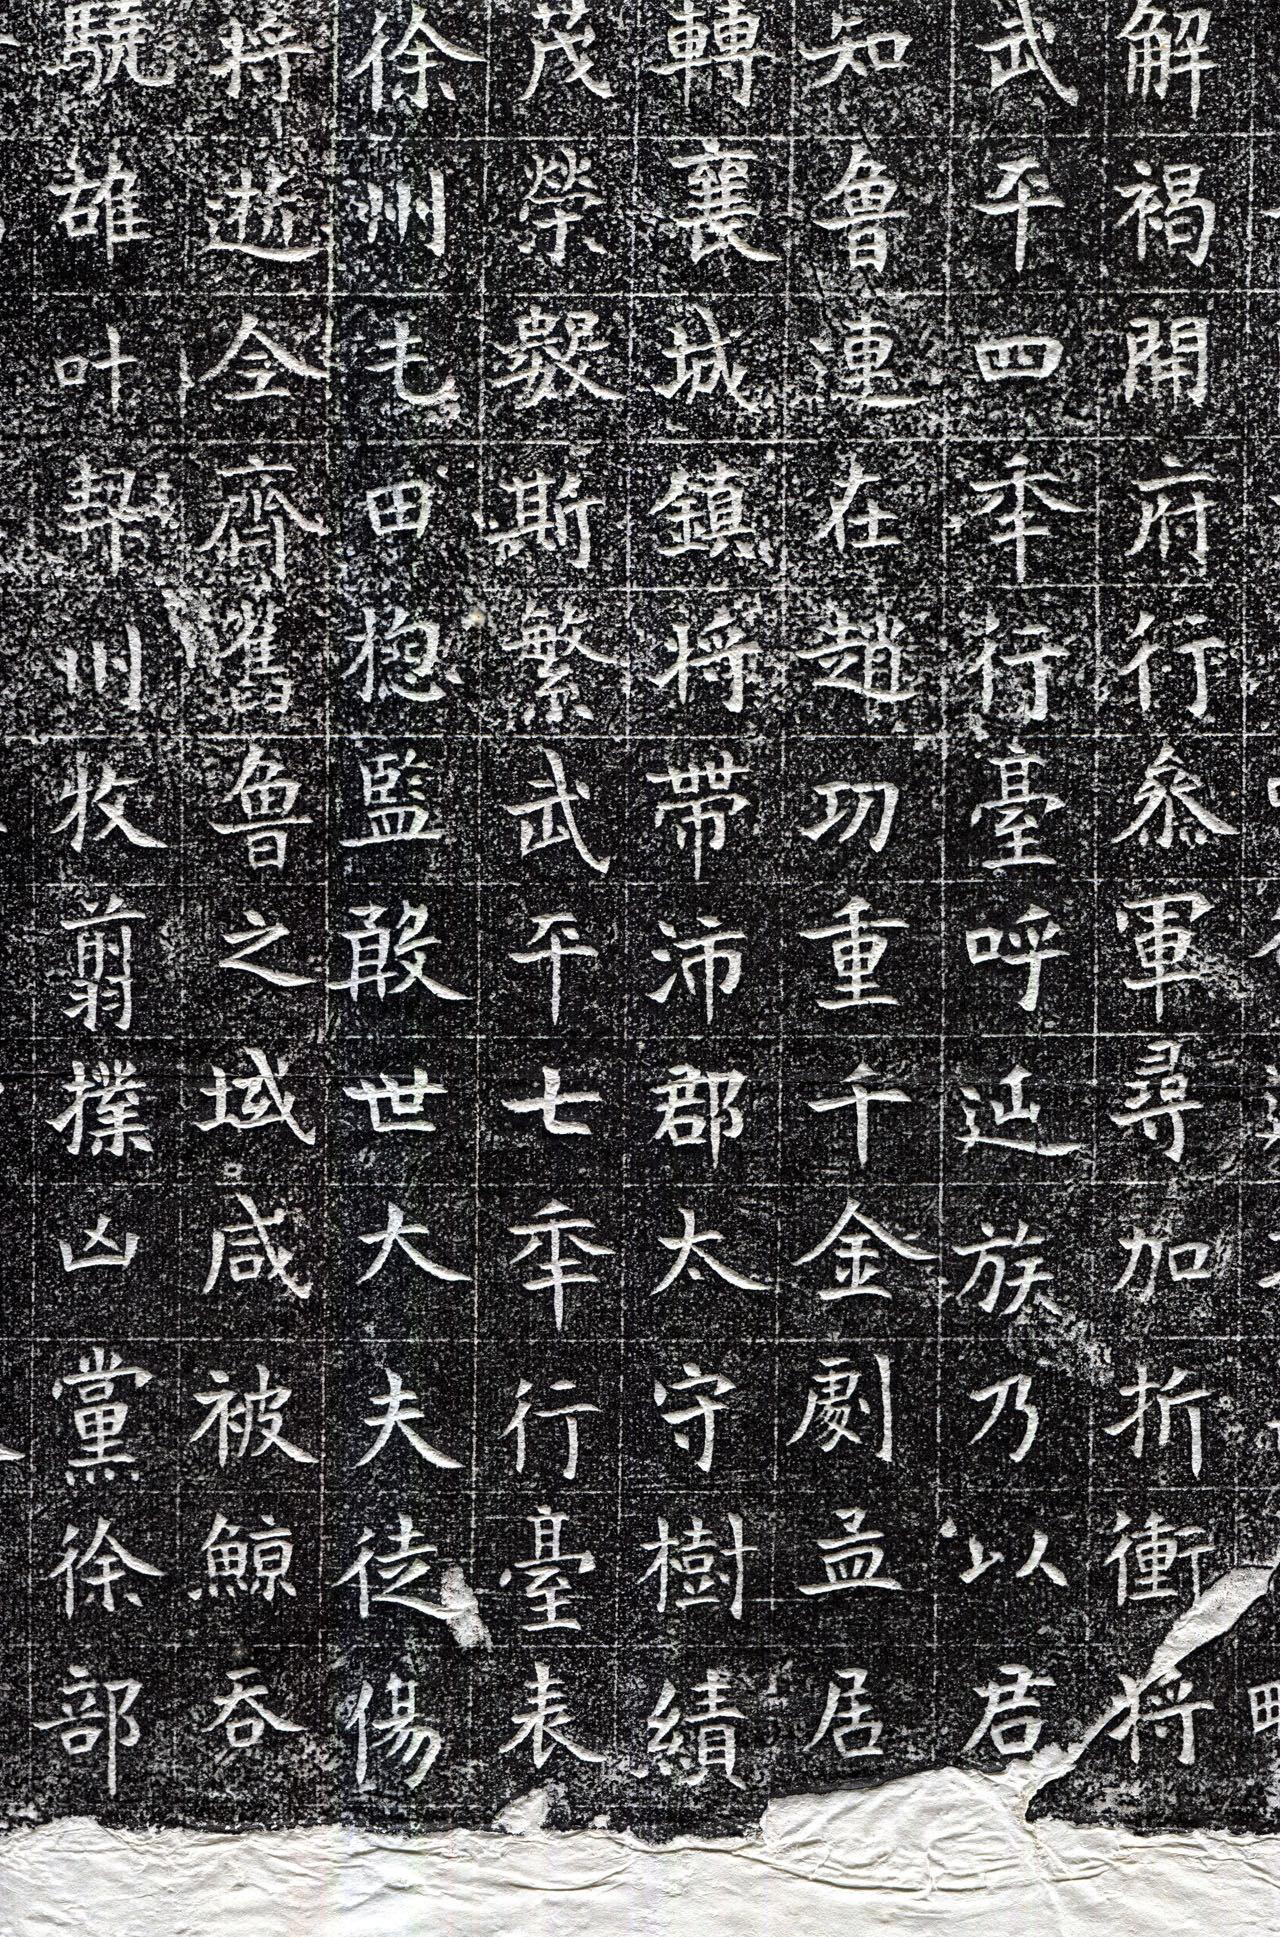 解褐開府行參軍尋加折衝將
武平四年行臺呼延族乃以君
知魯連在趙功重千金劇孟居
轉襄城鎮將帶沛郡太守樹績
茂榮斯繁武平七年行臺表
徐州七田揔監敢世大夫徒傷
將逝今齊舊魯之域咸被鯨吞
驍雄叶契州牧翦撲凶黨徐部